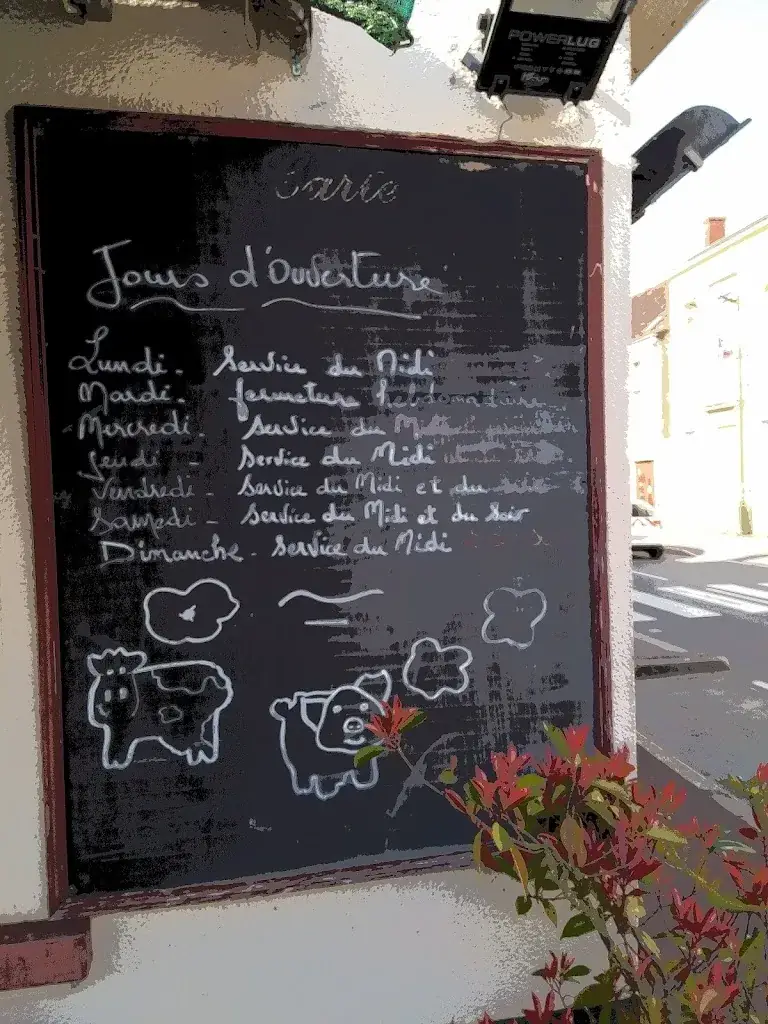 POWERLUG
Carte
Jours d'Ouverture
Lundi. Service du Midi
Mardi. fermeture hebdomadaire
Mercredi. Service du Midi
Jeudi - Service du Midi
Vendredi - Service du Midi et du
Samedi - Service du Midi et du Soir
Dimanche - Service du Midi